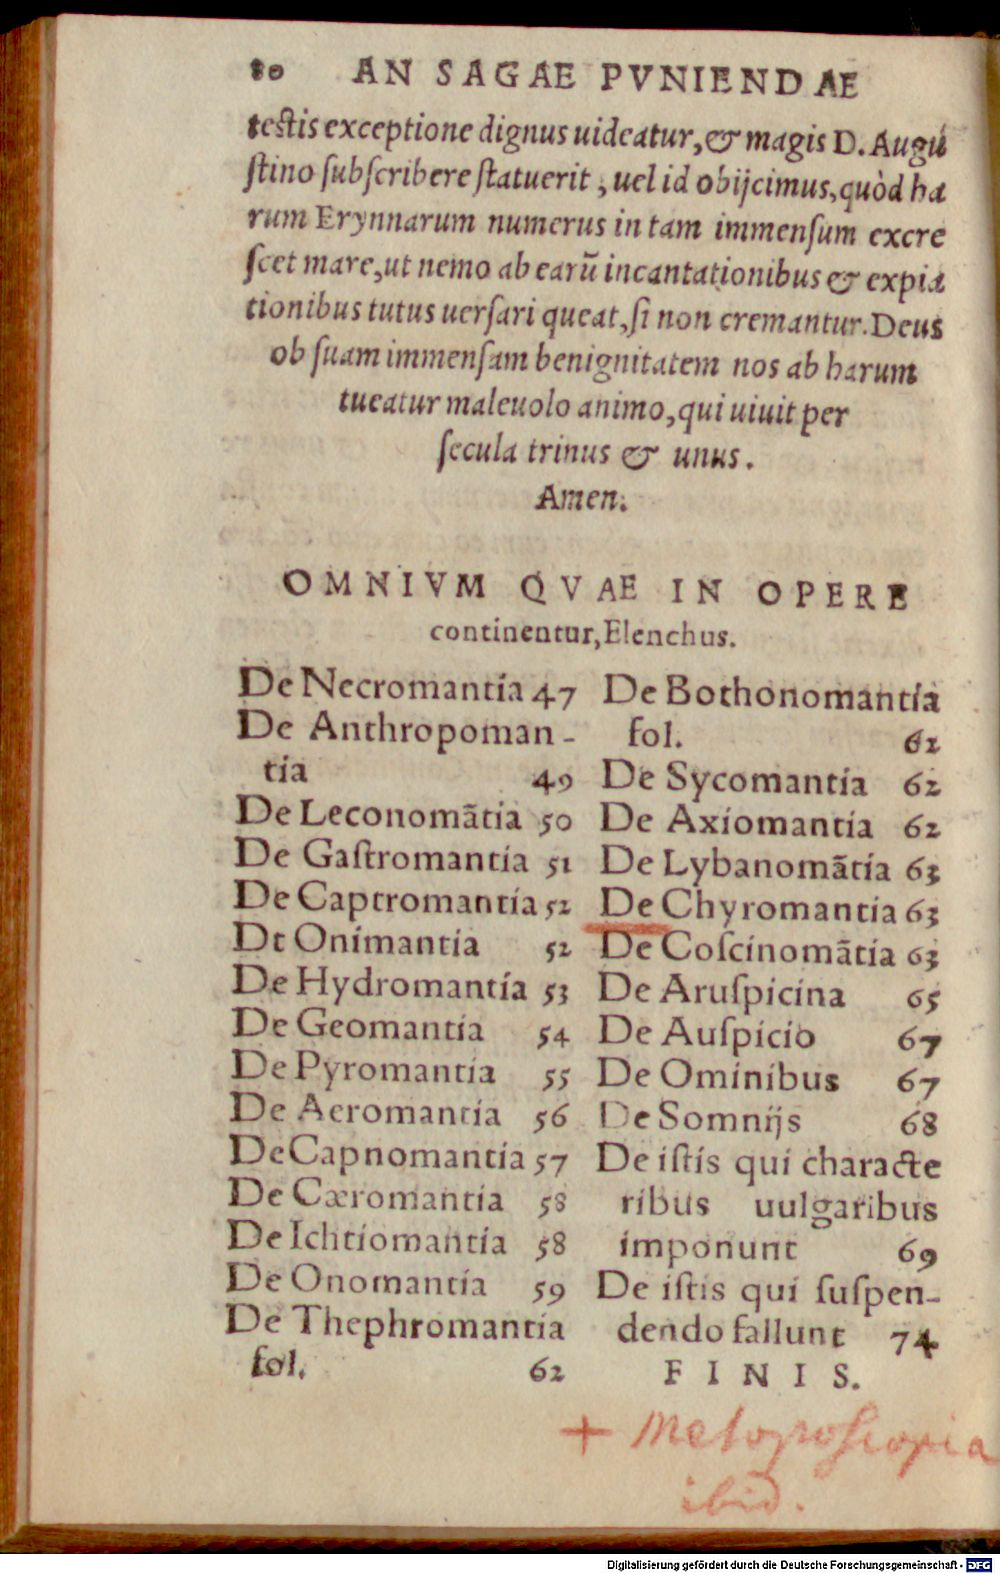 80 AN SAGAE PVNIENDAE
testis exceptione dignus uideatur, & magis D. Augu
ſtino ſubſcribere ſtatuerit, uel id obijcimus, quòd ha
rum Erynnarum numerus in tam immenſum excre
ſcet mare, ut nemo ab earũ incantationibus & expia
tionibus tutus uerſari queat, ſi non cremantur. Deus
ob ſuam immenſam benignitatem nos ab harum
tueatur maleuolo animo, qui uiuit per
ſecula trinus & unus.
Amen.
OMNIVM QVAE IN OPERE
continentur, Elenchus.
De Necromantia 47
De Anthropoman-
tia 49
De Leconomãtia 50
De Gaſtromantia 51
De Captromantia 52
De Onimantia 52
De Hydromantia 53
De Geomantia 54
De Pyromantia 55
De Aeromantia 56
De Capnomantia 57
De Cæromantia 58
De Ichtiomantia 58
De Onomantia 59
De Thephromantia
fol. 62
De Bothonomantia
fol. 62
De Sycomantia 62
De Axiomantia 62
De Lybanomãtia 63
De Chyromantia 63
De Coſcinomãtia 63
De Aruſpicina 65
De Auſpicio 67
De Ominibus 67
De Somnijs 68
De iſtis qui characte
ribus uulgaribus
imponunt 69
De iſtis qui ſuſpen-
dendo fallunt 74
FINIS.
+ Metoposcopia
ibid.
Digitalisierung gefördert durch die Deutsche Forschungsgemeinschaft - DFG